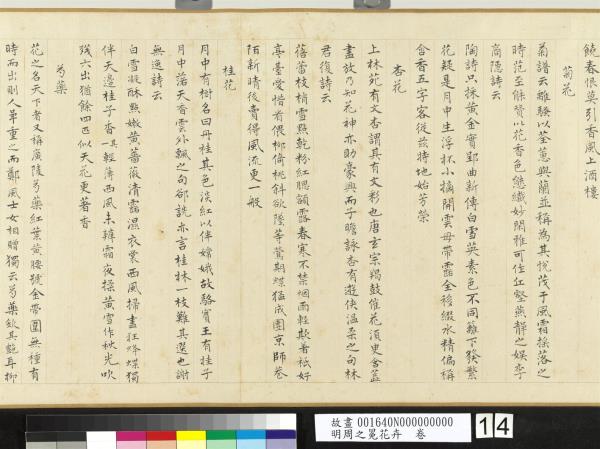 饒春恨莫引香風上酒樓
菊花
菊譜云離騷以荃蕙與蘭並稱為其悅茂于風霜搖落之
時范至能贊以花香色態纖妙閒雅可住江壑燕靜之娛李
商隱詩云
陶詩只採黃金實郢曲新傳白雪英素色不同籬下發繁
花疑是月中生浮杯小摘開雲母帶露全移綴水精偏稱
含香五字客從茲得地始芳榮
杏花
上林苑有文杏謂其有文彩也唐玄宗羯鼓催花須臾含蕊
盡放乃知花神亦助豪興而子瞻詠杏有遊俠溫柔之句林
君復詩云
蓓蕾枝梢雪點乾粉紅腮頰露春寒不禁烟雨輕欺著祇好
亭臺愛惜看偎柳倚桃斜欲墜等鶯期蝶猛成團京師巷
陌新晴後賣得風流更一般
桂花
月中有樹名曰丹桂其色淡紅以伴嫦娥故駱賓王有桂子
月中落天香雲外飄之句郤詵亦言桂林一枝難其選也謝
無逸詩云
白雪凝酥點嫩黃薔薇清露濕衣裳西風掃盡狂蜂蝶獨
伴天邊桂子香 其一 輕薄西風未辦霜夜揉黃雪作秋光吹
殘六出猶餘四匹似天花更著香
芍藥
花之名天下者又稱廣陵芍藥紅葉黃腰號金帶圍無種有
時而出則人爭重之而鄭風士女相贈獨云芍藥欽其艷耳柳
故畫 001640N000000000
明周之冕花卉 卷
14